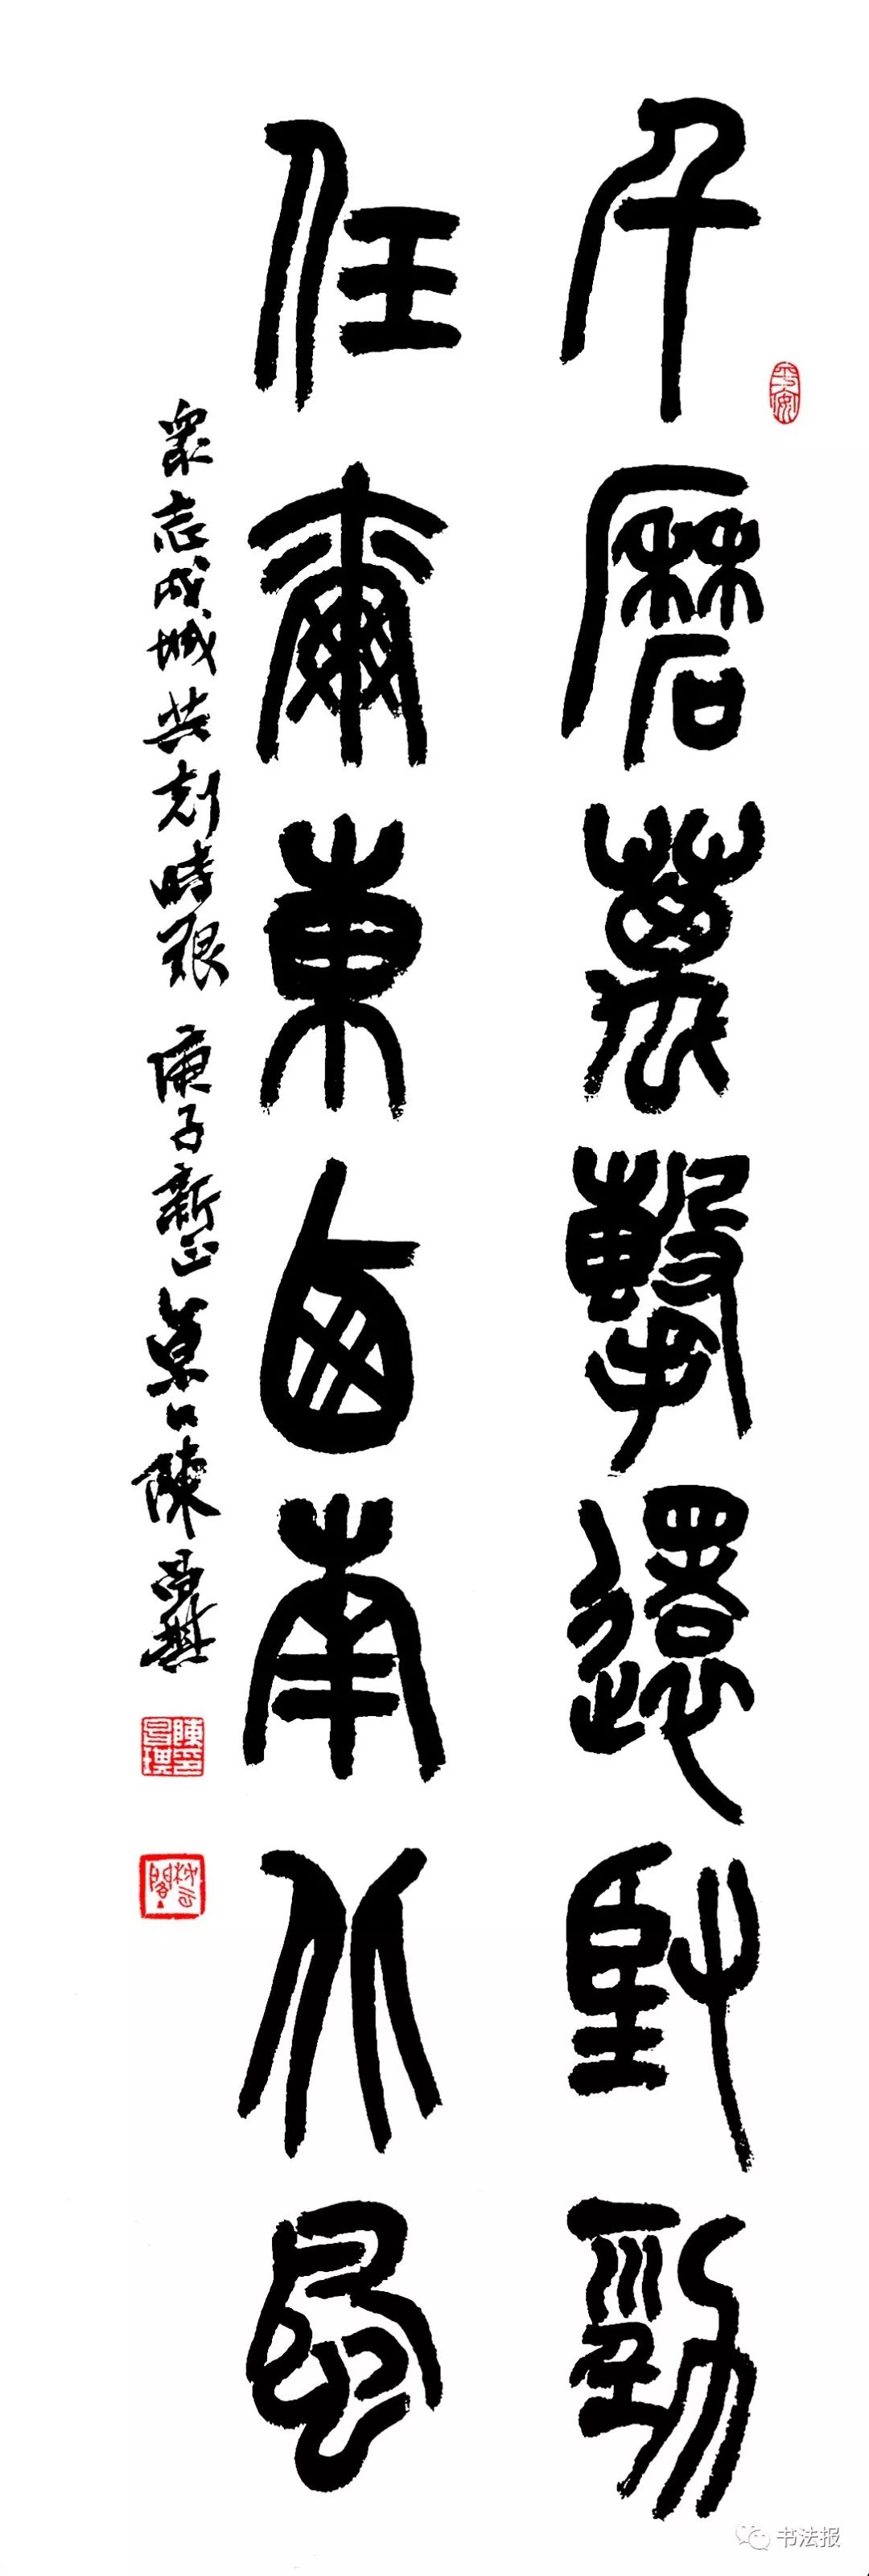 平安
千磨萬擊還堅勁
任爾東西南北風
衆志成城共剋時艱 庚子新正 京口陳
书法报